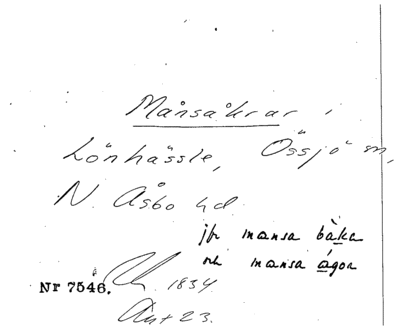 Månsåkrar,
Lönhässle, Össjö sn,
N. Åsbo hd
jfr mansa båka
och mansa ågor
1834
Nr 7546.
23.